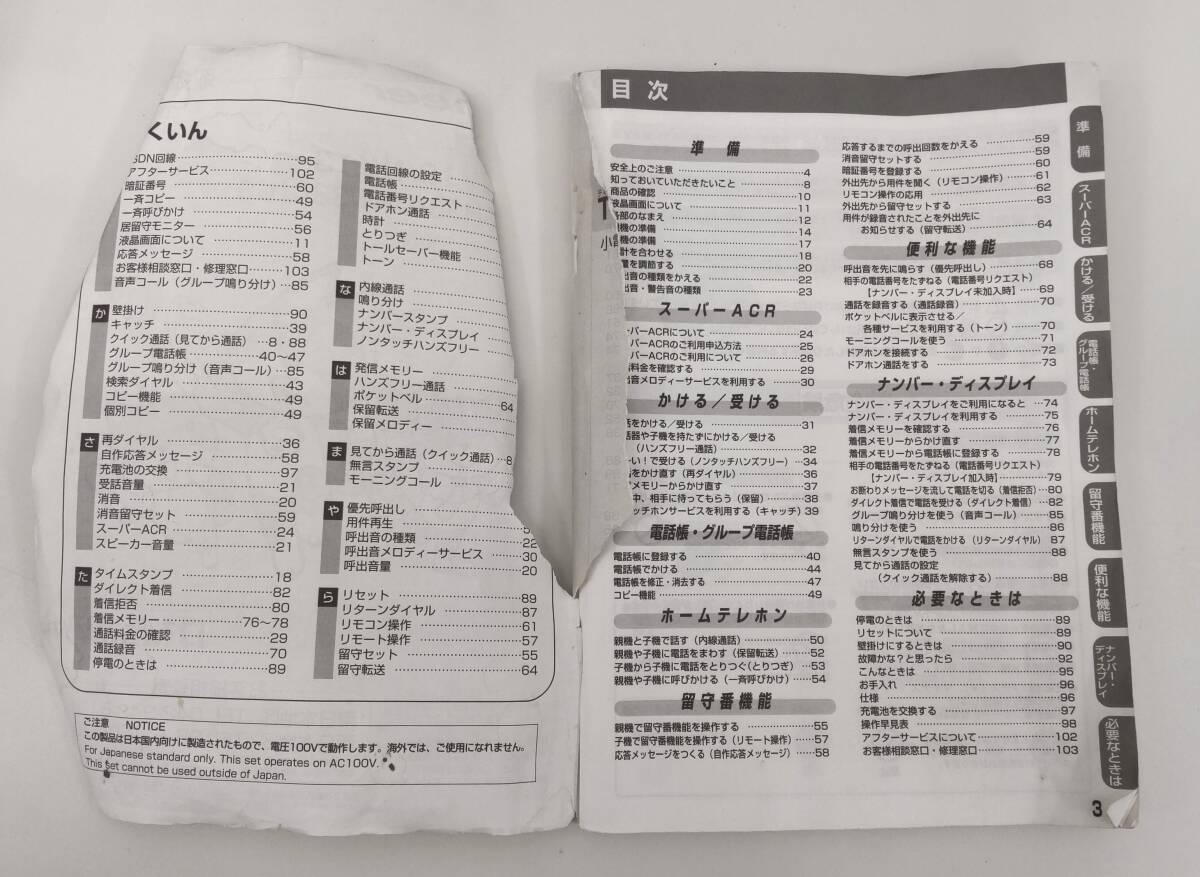 くいん
SDN回線 95
アフターサービス 102
暗証番号 60
一斉コピー 49
一斉呼びかけ 54
居留守モニター 56
液晶画面について 11
応答メッセージ 58
お客様相談窓口・修理窓口 103
音声コール（グループ鳴り分け） 85
か 壁掛け 90
キャッチ 39
クイック通話（見てから通話） 8・88
グループ電話帳 40〜47
グループ鳴り分け（音声コール） 85
検索ダイヤル 43
コピー機能 49
個別コピー 49
さ 再ダイヤル 36
自作応答メッセージ 58
充電池の交換 97
受話音量 21
消音 20
消音留守セット 59
スーパーACR 24
スピーカー音量 21
た タイムスタンプ 18
ダイレクト着信 82
着信拒否 80
着信メモリー 76〜78
通話料金の確認 29
通話録音 70
停電のときは 89
電話回線の設定
電話帳
電話番号リクエスト
ドアホン通話
時計
とりつぎ
トールセーバー機能
トーン
な 内線通話
鳴り分け
ナンバースタンプ
ナンバー・ディスプレイ
ノンタッチハンズフリー
は 発信メモリー
ハンズフリー通話
ポケットベル 64
保留転送
保留メロディー
ま 見てから通話（クイック通話） 8
無言スタンプ
モーニングコール
や 優先呼出し
用件再生
呼出音の種類 22
呼出音メロディーサービス 30
呼出音量 20
ら リセット 89
リターンダイヤル 87
リモコン操作 61
リモート操作 57
留守セット 55
留守転送 64
ご注意 NOTICE
この製品は日本国内向けに製造されたもので、電圧100Vで動作します。海外では、ご使用になれません。
For Japanese standard only. This set operates on AC100V.
This set cannot be used outside of Japan.
目次
準備
安全上のご注意 4
知っておいていただきたいこと 8
商品の確認 10
液晶画面について 11
各部のなまえ 12
機の準備 14
機の準備 17
計を合わせる 18
量を調節する 20
出音の種類をかえる 22
出音・警告音の種類 23
スーパーACR
ーパーACRについて 24
ーパーACRのご利用申込方法 25
ーパーACRのご利用について 26
料金を確認する 29
出音メロディーサービスを利用する 30
かける／受ける
話をかける／受ける 31
話器や子機を持たずにかける／受ける
（ハンズフリー通話） 32
ーい！で受ける（ノンタッチハンズフリー） 34
をかけ直す（再ダイヤル） 36
メモリーからかけ直す 37
中、相手に待ってもらう（保留） 38
ャッチホンサービスを利用する（キャッチ） 39
電話帳・グループ電話帳
電話帳に登録する 40
電話帳でかける 44
電話帳を修正・消去する 47
コピー機能 49
ホームテレホン
親機と子機で話す（内線通話） 50
親機や子機に電話をまわす（保留転送） 52
子機から子機に電話をとりつぐ（とりつぎ） 53
親機や子機に呼びかける（一斉呼びかけ） 54
留守番機能
親機で留守番機能を操作する 55
子機で留守番機能を操作する（リモート操作） 57
応答メッセージをつくる（自作応答メッセージ） 58
応答するまでの呼出回数をかえる 59
消音留守セットする 59
暗証番号を登録する 60
外出先から用件を聞く（リモコン操作） 61
リモコン操作の応用 62
外出先から留守セットする 63
用件が録音されたことを外出先に
お知らせする（留守転送） 64
便利な機能
呼出音を先に鳴らす（優先呼出し） 68
相手の電話番号をたずねる（電話番号リクエスト）
【ナンバー・ディスプレイ未加入時】 69
通話を録音する（通話録音） 70
ポケットベルに表示させる／
各種サービスを利用する（トーン） 70
モーニングコールを使う 71
ドアホンを接続する 72
ドアホン通話をする 73
ナンバー・ディスプレイ
ナンバー・ディスプレイをご利用になると 74
ナンバー・ディスプレイを利用する 75
着信メモリーを確認する 76
着信メモリーからかけ直す 77
着信メモリーから電話帳に登録する 78
相手の電話番号をたずねる（電話番号リクエスト）
【ナンバー・ディスプレイ加入時】 79
お断わりメッセージを流して電話を切る（着信拒否） 80
ダイレクト着信で電話を受ける（ダイレクト着信） 82
グループ鳴り分けを使う（音声コール） 85
鳴り分けを使う 86
リターンダイヤルで電話をかける（リターンダイヤル） 87
無言スタンプを使う 88
見てから通話の設定
（クイック通話を解除する） 88
必要なときは
停電のときは 89
リセットについて 89
壁掛けにするときは 90
故障かな？と思ったら 92
こんなときは 95
お手入れ 96
仕様 96
充電池を交換する 97
操作早見表 98
アフターサービスについて 102
お客様相談窓口・修理窓口 103
準備
スーパーACR
かける／受ける
電話帳・グループ電話帳
ホームテレホン
留守番機能
便利な機能
ナンバー・ディスプレイ
必要なときは
3